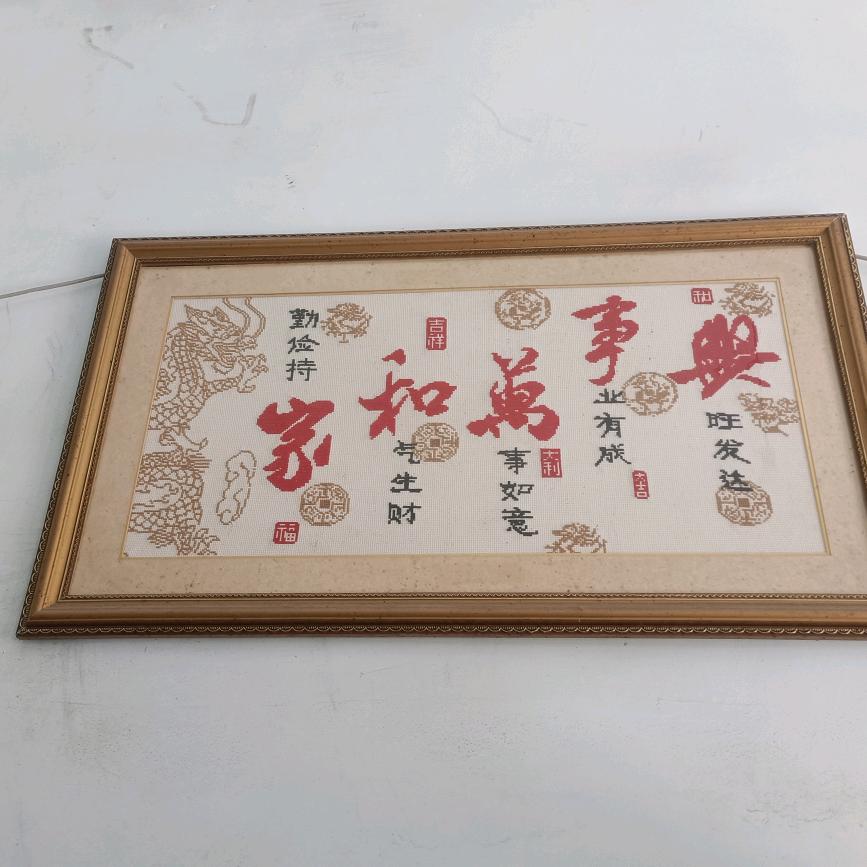 勤俭持家
和气生财
萬事如意
事业有成
興旺发达
福
吉祥
大利
大吉
和